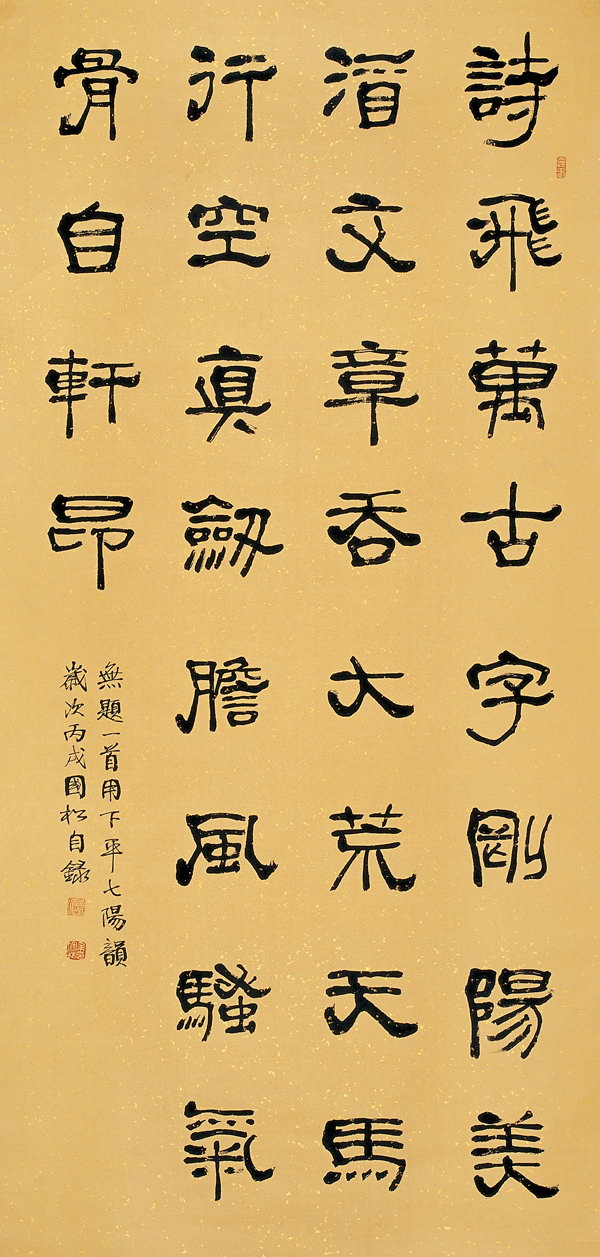 詩飛萬古字剛陽美
文章吞大荒天馬
行空眞劒膽風騷氣
骨自軒昂
無題一首用下平七陽韻
歲次丙戌國松自錄